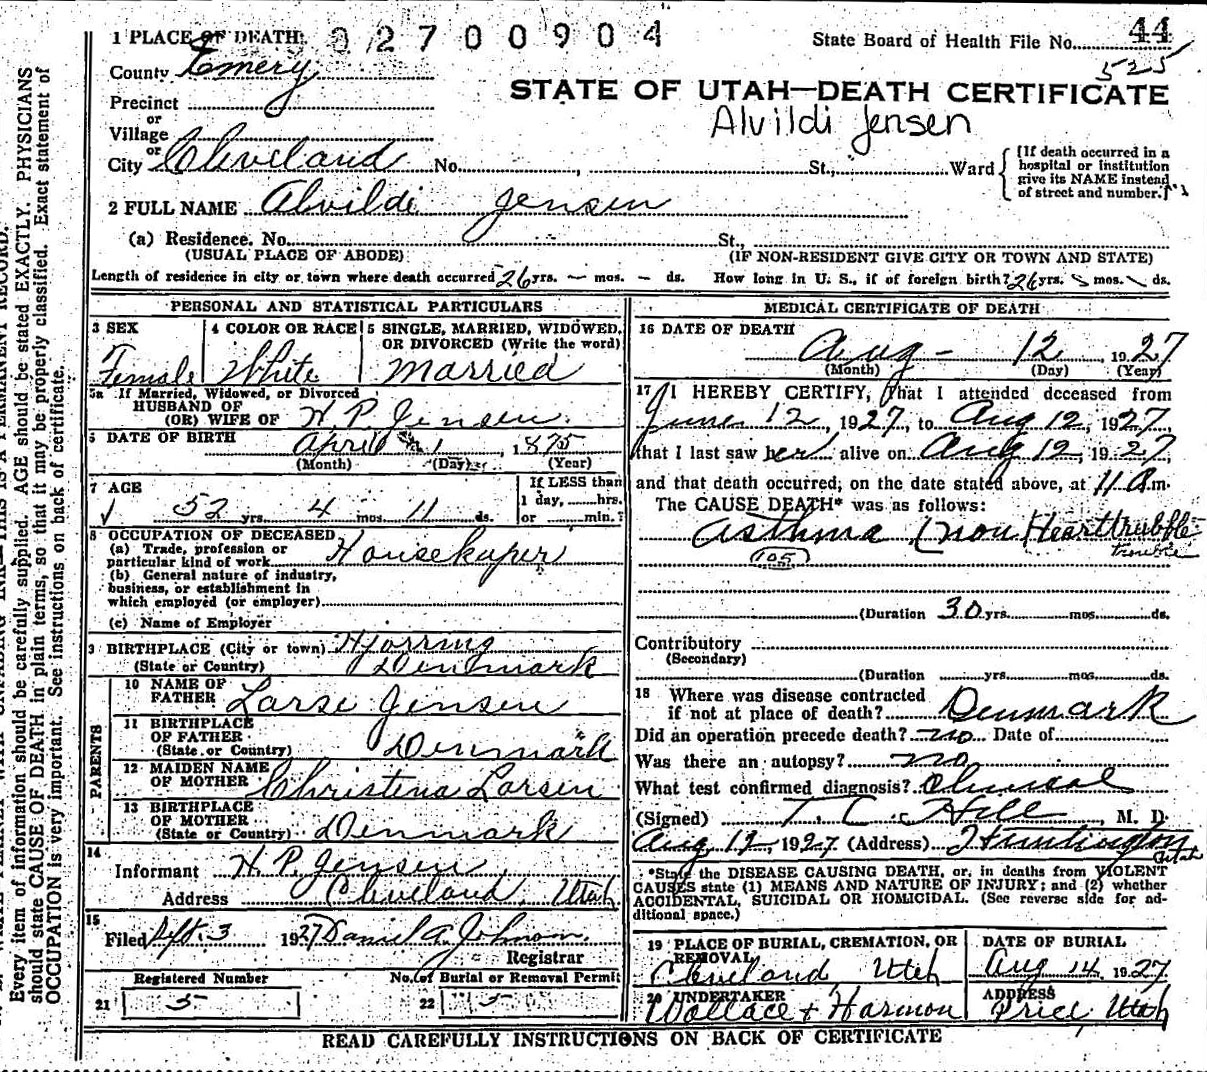 1 PLACE OF DEATH: 02700904 State Board of Health File No. 44
525
County Emery
STATE OF UTAH—DEATH CERTIFICATE
Precinct
or
Village
Alvildi Jensen
or
City Cleveland No. , St., Ward
[If death occurred in a hospital or institution give its NAME instead of street and number.]
2 FULL NAME Alvildi Jensen
(a) Residence. No. St.,
(USUAL PLACE OF ABODE) (IF NON-RESIDENT GIVE CITY OR TOWN AND STATE)
Length of residence in city or town where death occurred 26 yrs. – mos. – ds. How long in U. S., if of foreign birth? 26 yrs. mos. ds.
PERSONAL AND STATISTICAL PARTICULARS
3 SEX
Female
4 COLOR OR RACE
White
5 SINGLE, MARRIED, WIDOWED, OR DIVORCED (Write the word)
Married
5a If Married, Widowed, or Divorced
HUSBAND OF
(OR) WIFE OF H P. Jensen.
6 DATE OF BIRTH April 1, 1875
(Month) (Day) (Year)
7 AGE
52 yrs. 4 mos. 11 ds.
If LESS than
1 day, hrs.
or min.?
8 OCCUPATION OF DECEASED
(a) Trade, profession or
particular kind of work Housekeper
(b) General nature of industry,
business, or establishment in
which employed (or employer)
(c) Name of Employer
9 BIRTHPLACE (City or town) Hjorring
(State or Country) Denmark
PARENTS
10 NAME OF
FATHER Larse Jensen
11 BIRTHPLACE
OF FATHER
(State or Country) Denmark
12 MAIDEN NAME
OF MOTHER Christena Larsen
13 BIRTHPLACE
OF MOTHER
(State or Country) Denmark
14
Informant H. P. Jensen
Address Cleveland, Utah
15
Filed Sept. 3 1927 Daniel A. Johnson.
Registrar
Registered Number No. of Burial or Removal Permit
21 5 22 5
MEDICAL CERTIFICATE OF DEATH
16 DATE OF DEATH
Aug – 12, 1927
(Month) (Day) (Year)
17 I HEREBY CERTIFY, that I attended deceased from
June 12, 1927, to Aug 12, 1927,
that I last saw her alive on Aug 12, 1927,
and that death occurred, on the date stated above, at 11 A.m.
The CAUSE DEATH* was as follows:
Asthma (non Heart trubble
105 trouble
(Duration 30 yrs. mos. ds.
Contributory
(Secondary)
(Duration yrs. mos. ds.
18 Where was disease contracted
if not at place of death? Denmark
Did an operation precede death? no Date of
Was there an autopsy? no
What test confirmed diagnosis? Clinical
(Signed) T. C. Hill, M. D.
Aug 12 1927 (Address) Huntington
Utah
*State the DISEASE CAUSING DEATH, or, in deaths from VIOLENT
CAUSES state (1) MEANS AND NATURE OF INJURY; and (2) whether
ACCIDENTAL, SUICIDAL OR HOMICIDAL. (See reverse side for ad-
ditional space.)
19 PLACE OF BURIAL, CREMATION, OR REMOVAL
Cleveland, Utah
DATE OF BURIAL
Aug 14, 1927
20 UNDERTAKER
Wallace + Harmon
ADDRESS
Price, Utah
READ CAREFULLY INSTRUCTIONS ON BACK OF CERTIFICATE
Every item of information should be carefully supplied. AGE should be stated EXACTLY. PHYSICIANS
should state CAUSE OF DEATH in plain terms, so that it may be properly classified. Exact statement of
OCCUPATION is very important. See instructions on back of certificate.